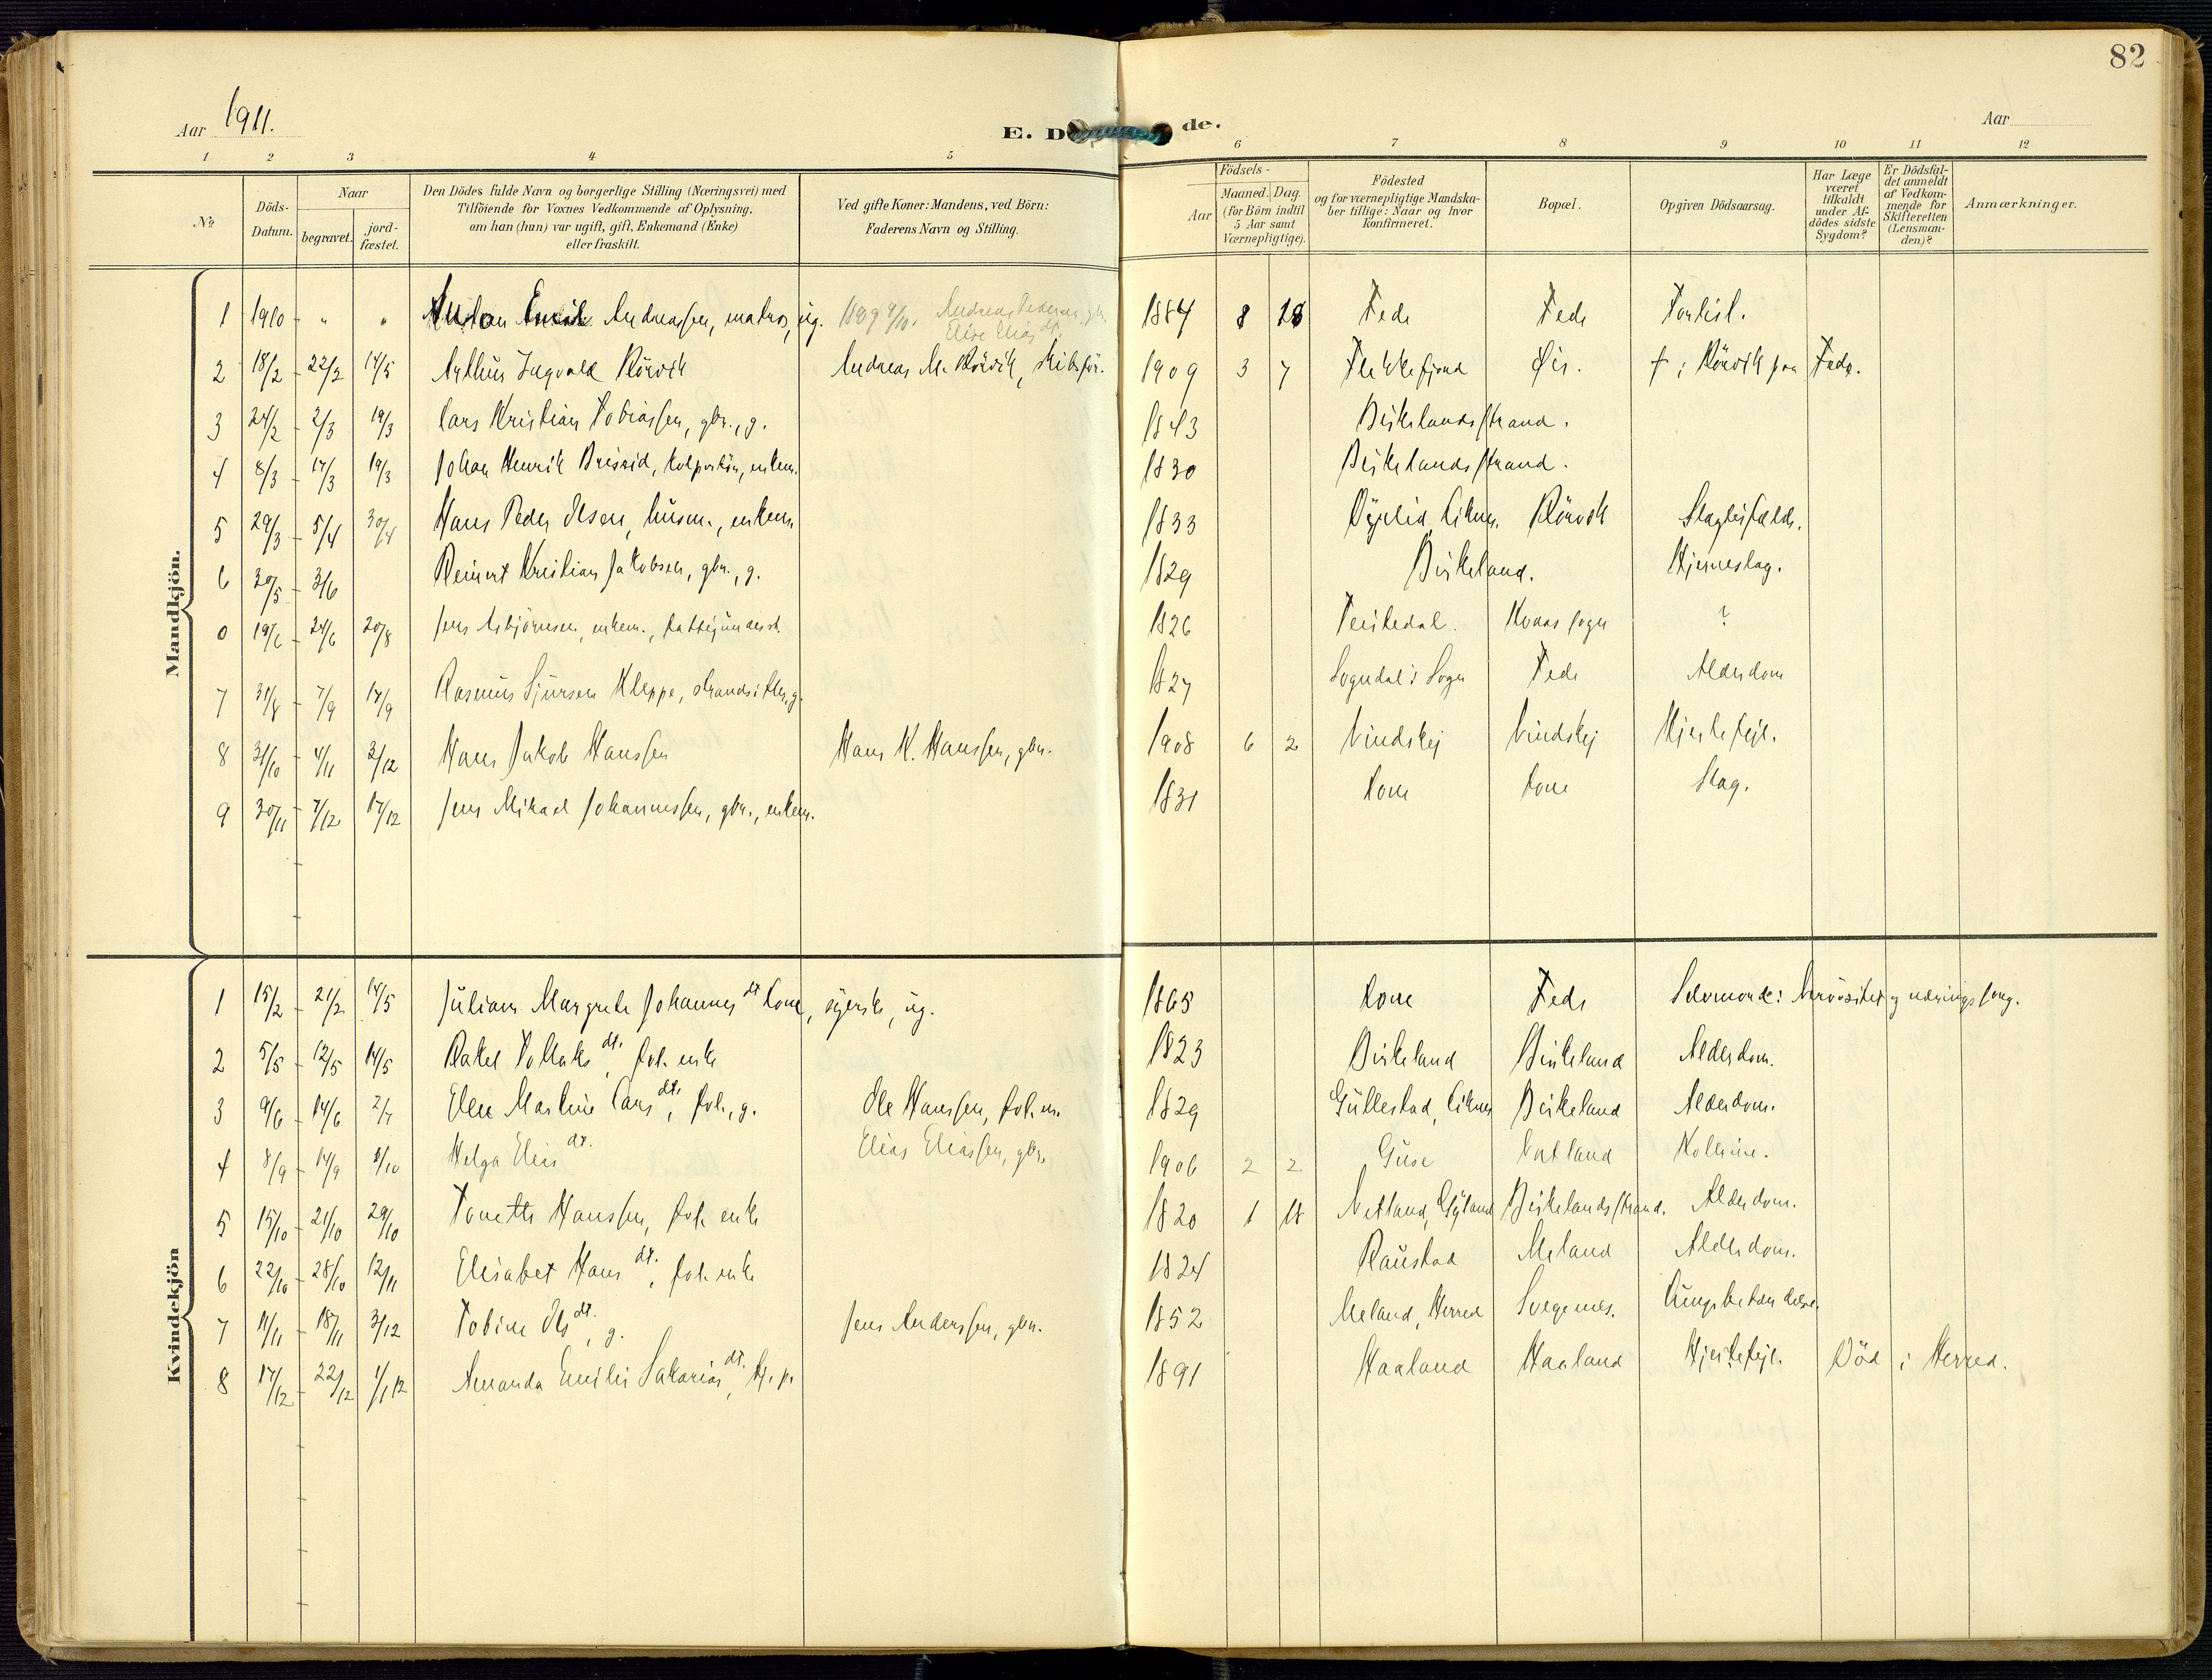 82
Aar 1911.
E. D
de.
Aar
1 2 3 4 5 6 7 8 9 10 11 12
No
Döds-Datum.
Naar
begravet.
jord-fæstet.
Den Dödes fulde Navn og borgerlige Stilling (Næringsvei) med
Tilföiende for Voxnes Vedkommende af Oplysning,
om han (hun) var ugift, gift, Enkemand (Enke)
eller fraskilt.
Ved gifte Koner: Mandens, ved Börn:
Faderens Navn og Stilling.
Födsels-
Aar
Maaned. Dag.
(for Börn indtil
5 Aar samt
Værnepligtige).
Födested
og for værnepligtige Mandska-
ber tillige: Naar og hvor
konfirmeret.
Bopæl.
Opgiven Dödsaarsag.
Har Læge
været
tilkaldt
under Af-
dödes sidste
Sygdom?
Er Dödsfal-
det anmeldt
af Vedkom-
mende for
Skifteretten
(Lensman-
den)?
Anmærkninger.
Mandkjön.
1 1910 - " " Anton Emil Andreassen, matros, ug. 1884 8 28 Fede Fede Forlist.
2 18/2 - 22/2 14/5 Arthur Ingvald Rörvik Andreas M. Rörvik, skibsför. 1909 3 7 Flekkefjord Öie. † i Rörvik paa Fede.
3 24/2 - 2/3 19/3 Lars Kristian Tobiassen, gbr., g. 1843 Birkelandsstrand.
4 8/3 - 17/3 19/3 Johan Henrik Breivid, kolportör, enkem. 1830 Birkelandsstrand.
5 29/3 - 5/4 30/4 Hans Peder Olsen, husm., enkem. 1833 Dyrlid, Liknes Rörvik Slagtilfælde.
6 30/5 - 3/6 Reinert Kristian Jakobsen, gbr., g. 1829 Birkeland. Hjerneslag.
0 19/6 - 24/6 20/8 Jens Asbjörnsen, enkem., fattigunderst. 1826 Feiskedal. Kvaas sogn ?
7 31/8 - 7/9 17/9 Rasmus Sjursen Kleppe, strandsitter, g. 1827 Sogndal i Sogn Fede Alderdom
8 31/10 - 4/11 3/12 Hans Jakob Hanssen Hans K. Hanssen, gbr. 1908 6 2 Vindskej Vindskej Hjertefejl.
9 30/11 - 7/12 17/12 Jens Mikael Johannessen, gbr., enkem. 1831 Lone Lone Slag.
Kvindekjön
1 15/2 - 21/2 14/5 Juliane Margrete Johannesdt Lone, syerske, ug. 1865 Lone Fede Selvmord: Nervösitet og næringssorg.
2 5/5 - 12/5 14/5 Rakel Tollaksdt., fol. enke 1823 Birkeland Birkeland Alderdom.
3 9/6 - 14/6 2/7 Elen Martine Larsdt., fol., g. Ole Hanssen, fol.m. 1829 Gullestad, Liknes Birkeland Alderdom.
4 8/9 - 14/9 8/10 Helga Eliasdt. Elias Eliassen, gbr. 1906 2 2 Guse Vatland Kolerine.
5 15/10 - 21/10 29/10 Tonette Hanssen, fol. enke 1820 1 18 Netland, Gyland Birkelandsstrand. Alderdom.
6 22/10 - 28/10 12/11 Elisabet Hansdt., fol. enke 1824 Raustad Meland Alderdom.
7 11/11 - 18/11 3/12 Tobine Olsdt., g. Jens Anderssen, gbr. 1852 Meland, Herred Svegenes. Lungebetændelse.
8 17/12 - 22/12 1/1 12 Amanda Emilie Sakariasdt., tj.p. 1891 Haaland Haaland Hjertefejl. Död i Herred.